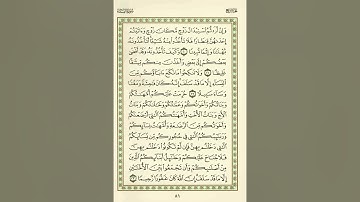 وَإِنْ أَرَدتُّمُ ٱسْتِبْدَالَ زَوْجٍ مَّكَانَ زَوْجٍ وَءَاتَيْتُمْ
إِحْدَىٰهُنَّ قِنطَارًا فَلَا تَأْخُذُوا۟ مِنْهُ شَيْـًٔا أَتَأْخُذُونَهُۥ
بُهْتَٰنًا وَإِثْمًا مُّبِينًا ٢٠ وَكَيْفَ تَأْخُذُونَهُۥ وَقَدْ أَفْضَىٰ
بَعْضُكُمْ إِلَىٰ بَعْضٍ وَأَخَذْنَ مِنكُم مِّيثَٰقًا
غَلِيظًا ٢١ وَلَا تَنكِحُوا۟ مَا نَكَحَ ءَابَآؤُكُم مِّنَ
ٱلنِّسَآءِ إِلَّا مَا قَدْ سَلَفَ إِنَّهُۥ كَانَ فَٰحِشَةً وَمَقْتًا
وَسَآءَ سَبِيلًا ٢٢ حُرِّمَتْ عَلَيْكُمْ أُمَّهَٰتُكُمْ
وَبَنَاتُكُمْ وَأَخَوَٰتُكُمْ وَعَمَّٰتُكُمْ وَخَٰلَٰتُكُمْ وَبَنَاتُ
ٱلْأَخِ وَبَنَاتُ ٱلْأُخْتِ وَأُمَّهَٰتُكُمُ ٱلَّٰتِىٓ أَرْضَعْنَكُمْ
وَأَخَوَٰتُكُم مِّنَ ٱلرَّضَٰعَةِ وَأُمَّهَٰتُ نِسَآئِكُمْ
وَرَبَٰٓئِبُكُمُ ٱلَّٰتِى فِى حُجُورِكُم مِّن نِّسَآئِكُمُ
ٱلَّٰتِى دَخَلْتُم بِهِنَّ فَإِن لَّمْ تَكُونُوا۟ دَخَلْتُم بِهِنَّ
فَلَا جُنَاحَ عَلَيْكُمْ وَحَلَٰٓئِلُ أَبْنَآئِكُمُ ٱلَّذِينَ
مِنْ أَصْلَٰبِكُمْ وَأَن تَجْمَعُوا۟ بَيْنَ ٱلْأُخْتَيْنِ
إِلَّا مَا قَدْ سَلَفَ إِنَّ ٱللَّهَ كَانَ غَفُورًا رَّحِيمًا ٢٣
٨١